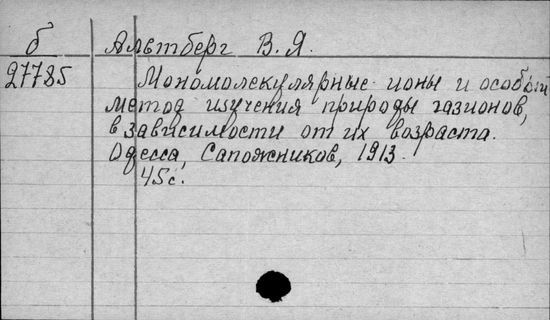 б Альтберг В. Я.
27785 Мономолекулярные ионы и особый
метод изучения природы газионов,
в зависимости от их возраста.
Одесса, Сапожников, 1913.
45 с.